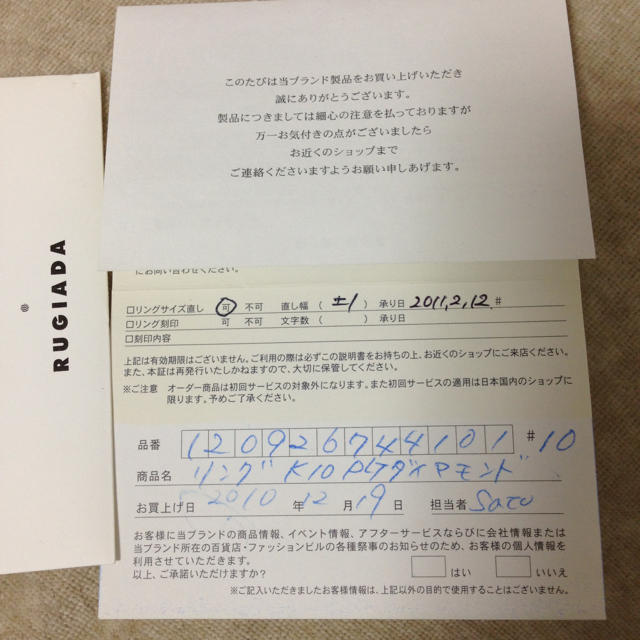 このたびは当ブランド製品をお買い上げいただき
誠にありがとうございます。
製品につきましては細心の注意を払っておりますが
万一お気付きの点がございましたら
お近くのショップまで
ご連絡くださいますようお願い申しあげます。
RUGIADA
にお問い合わせください。
□リングサイズ直し 可 不可 直し幅 ( ±1 ) 承り日 2011,2,12 #
□リング刻印 可 不可 文字数 ( ) 承り日
□刻印内容
上記は有効期限はございません。ご利用の際は必ずこの説明書をお持ちの上、お近くのショップにご来店ください。
また、本証は再発行いたしかねますので、大切に保管してください。
※ご注意 オーダー商品は初回サービスの対象外になります。また初回サービスの適用は日本国内のショップに
限ります。予めご了承ください。
品番 1209267444101 #10
商品名 リング K10 PLTダイヤモンド
お買上げ日 2010 年 12 月 19 日 担当者 Sato
お客様に当ブランドの商品情報、イベント情報、アフターサービスならびに会社情報または
当ブランド所在の百貨店・ファッションビルの各種祭事のお知らせのため、お客様の個人情報を
利用させていただきます。
以上、ご承諾いただけますか? □はい □いいえ
※ご記入いただきましたお客様情報は、上記以外の目的で使用することはございません。